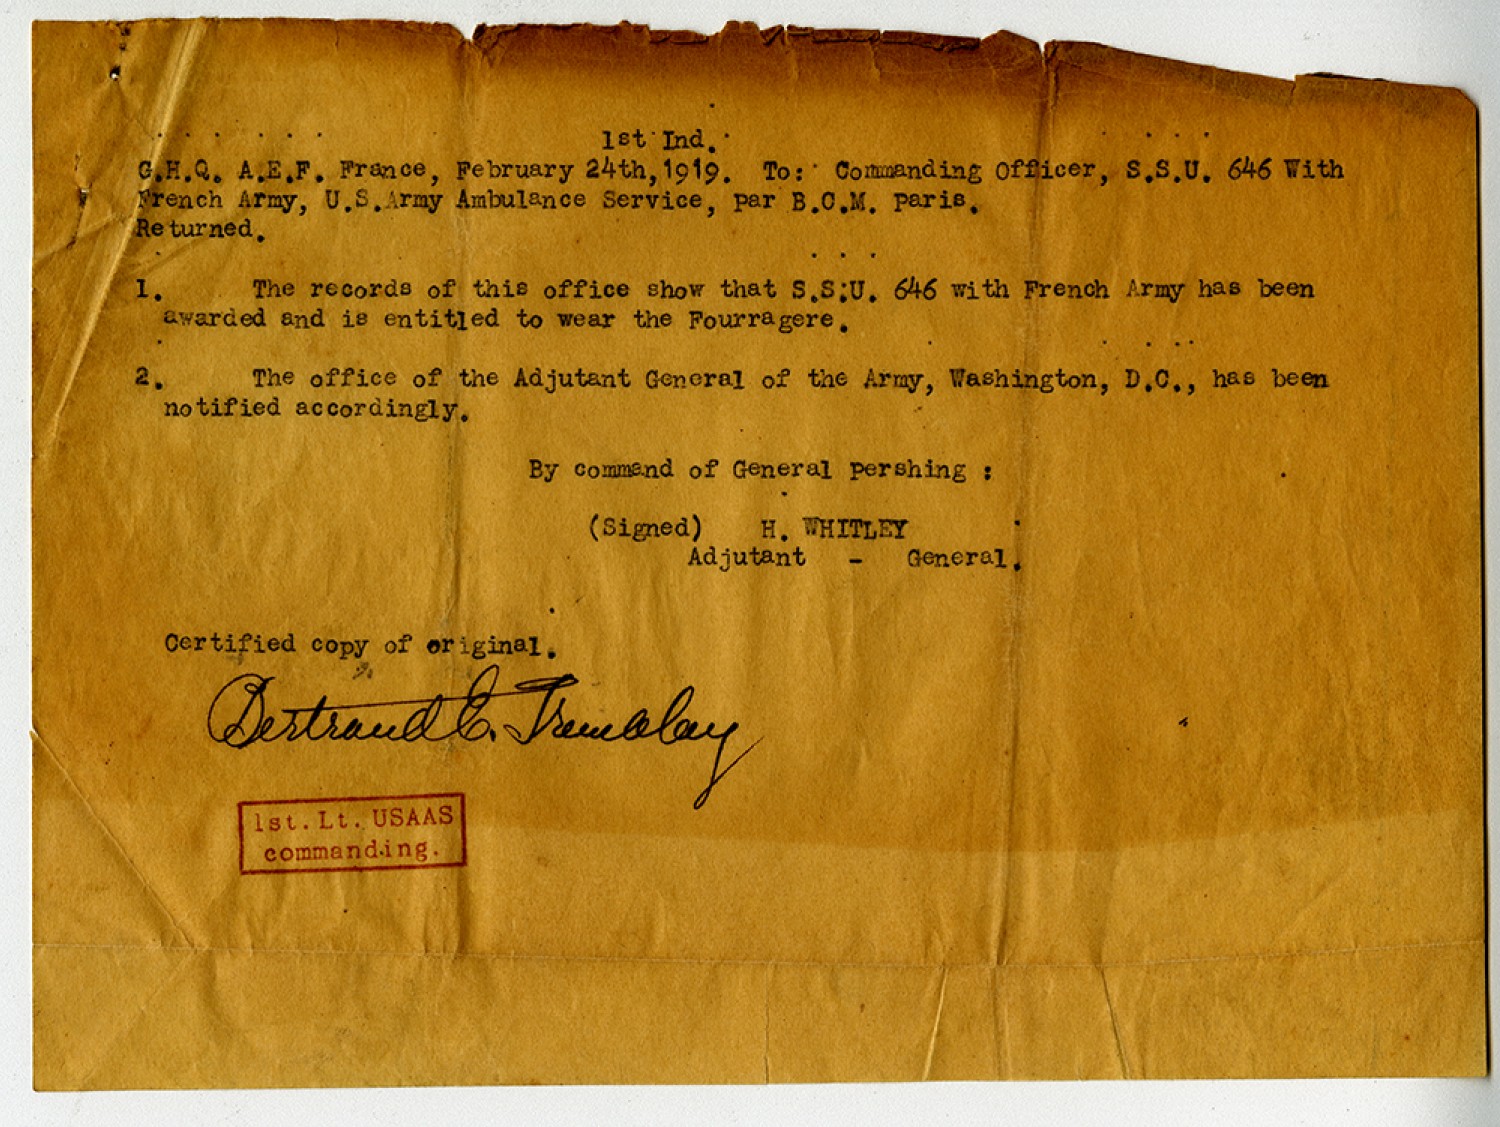 1st Ind.
G.H.Q. A.E.F. France, February 24th,1919. To: Commanding Officer, S.S.U. 646 With
French Army, U.S.Army Ambulance Service, par B.C.M. paris.
Returned.
1. The records of this office show that S.S.U. 646 with French Army has been
awarded and is entitled to wear the Fourragere.
2. The office of the Adjutant General of the Army, Washington, D.C., has been
notified accordingly.
By command of General pershing :
(Signed) H. WHITLEY
Adjutant - General.
Certified copy of original.
Bertrand E. Tremblay
1st. Lt. USAAS
commanding.